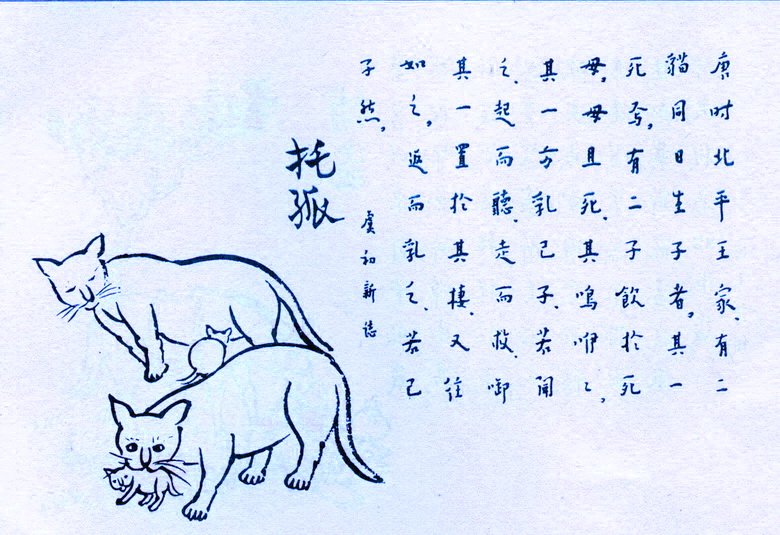 唐时北平王家、有二
貓同日生子者。其一
死焉。有二子飲於死
母。母且死、其鳴咿〻，
其一方乳己子、若聞
之、起而聽、走而救、啣
其一置於其棲、又往
如之。返而乳之、若己
子然。
虞初新誌
托孤